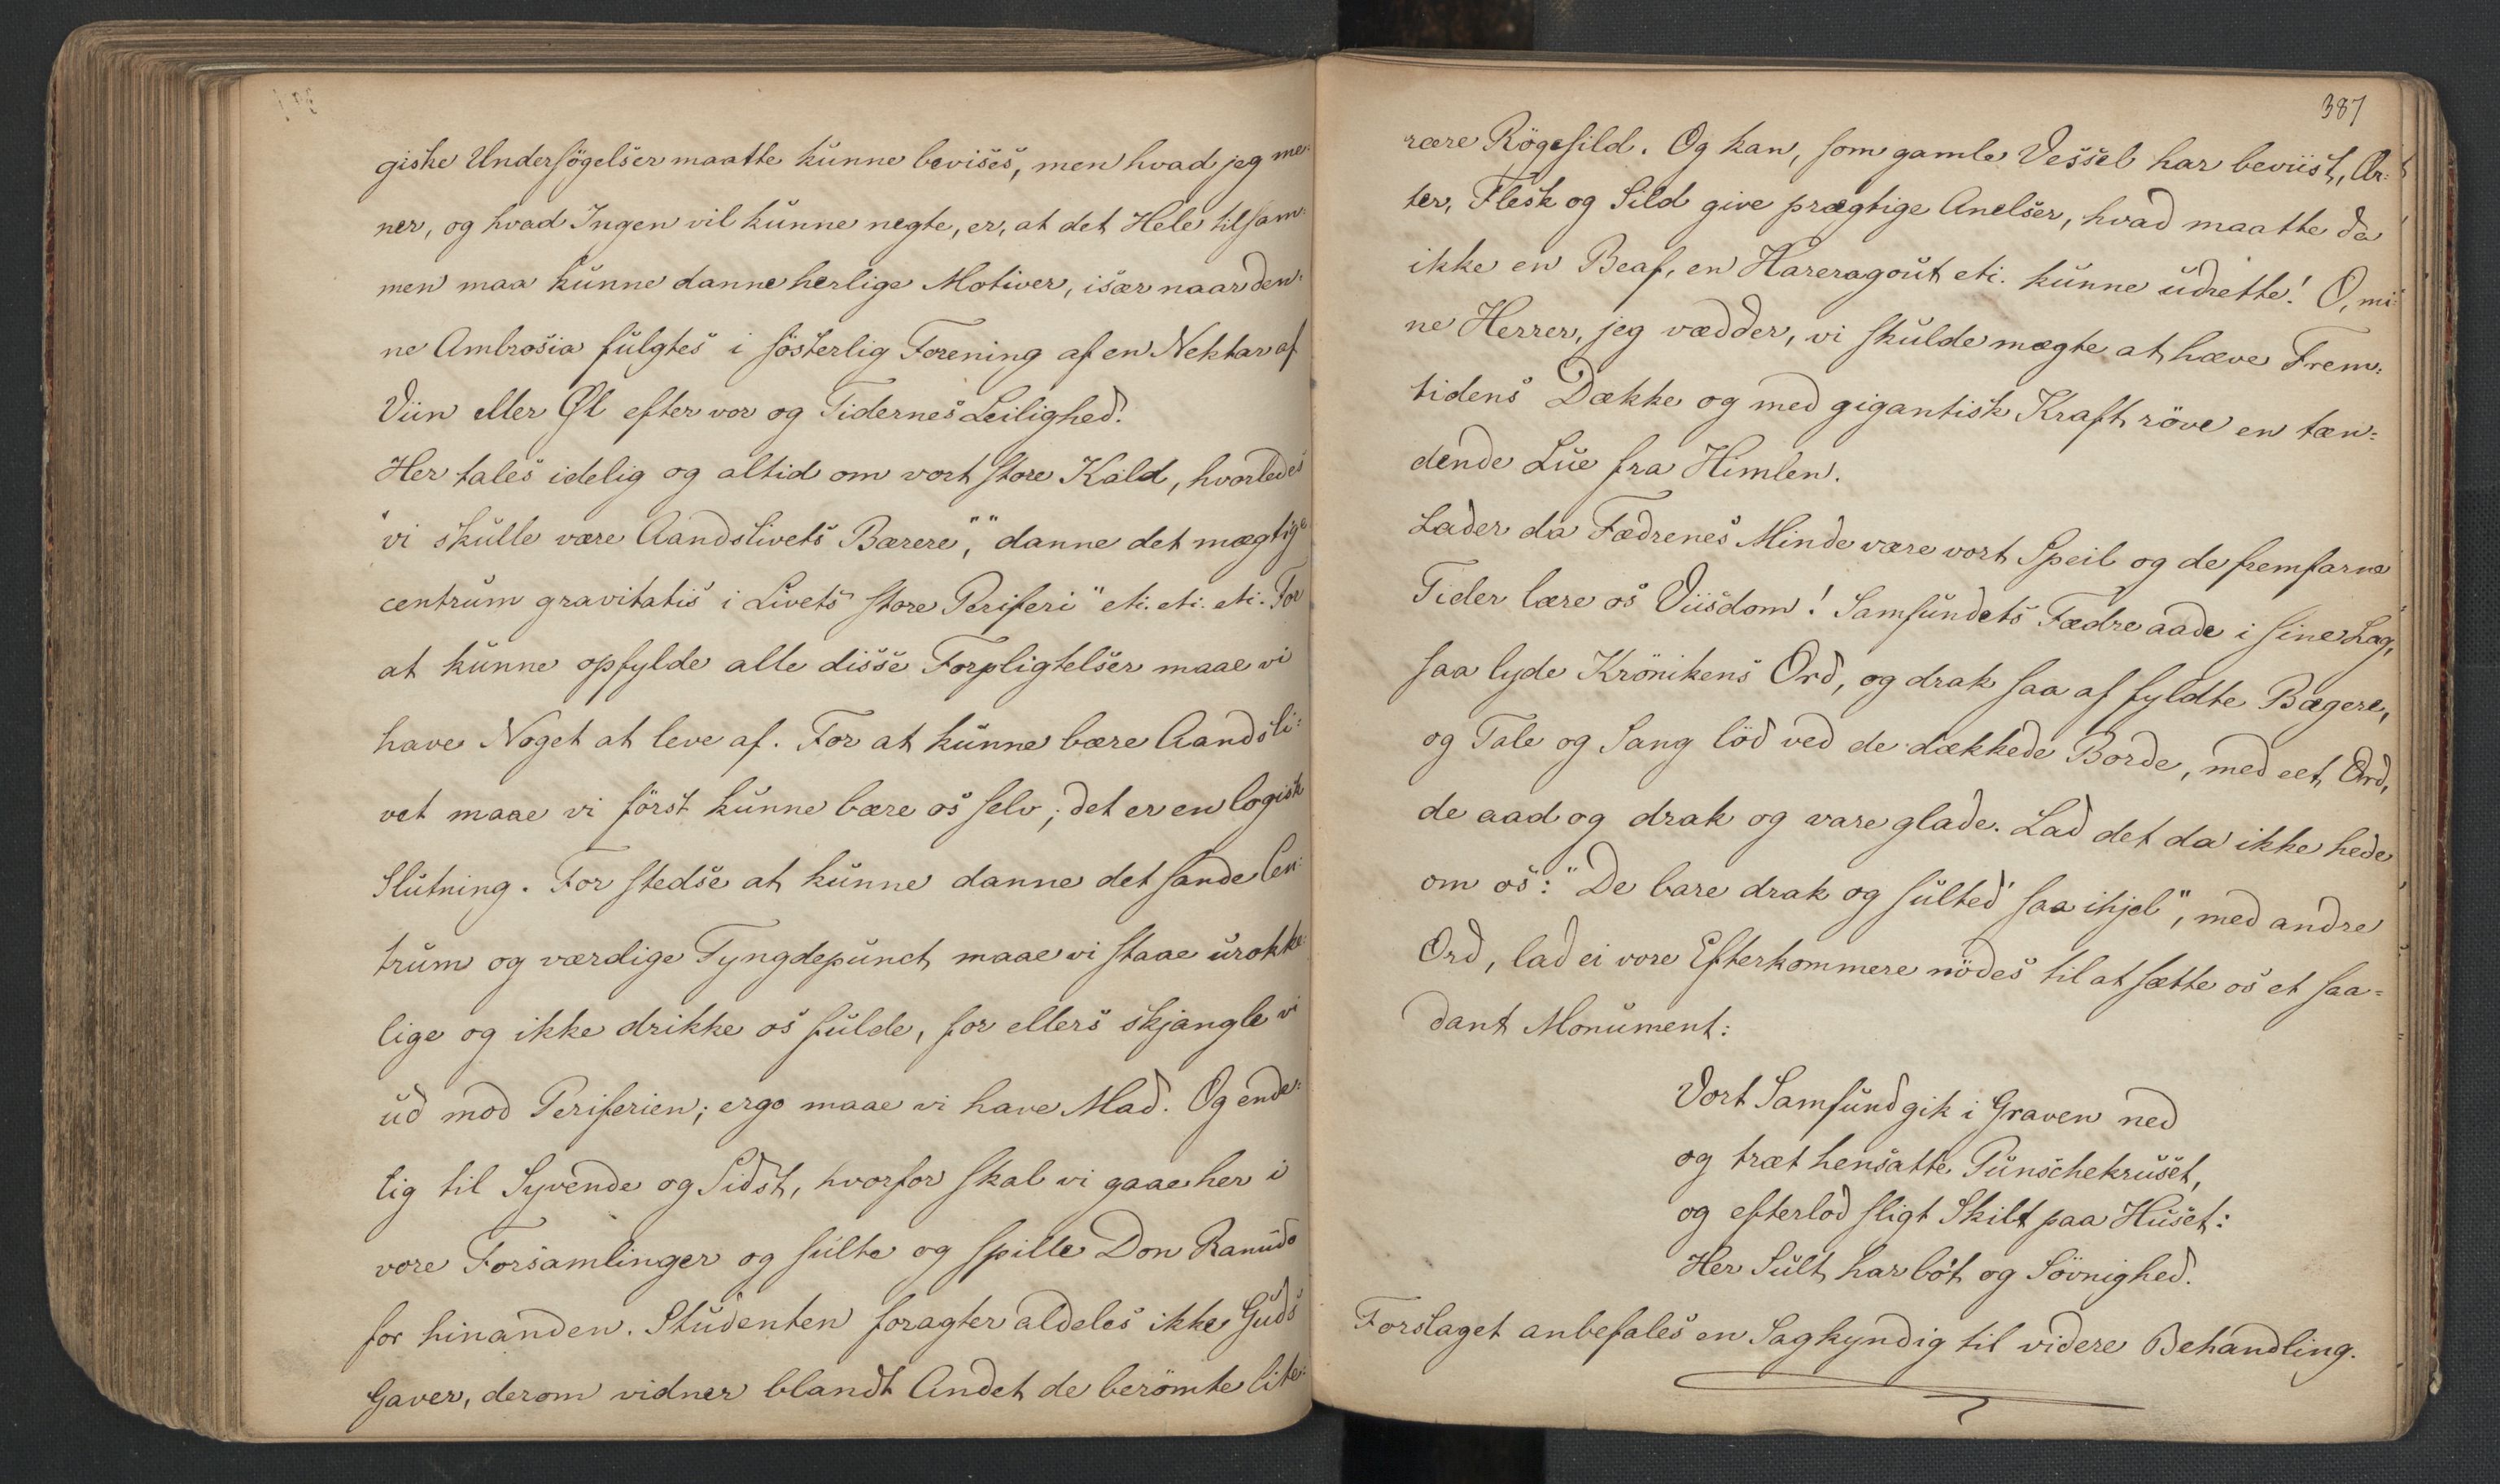 giske Undersögelser maatte kunne bevises, men hvad jeg me-
ner, og hvad Ingen vil kunne negte, er, at det Hele tilsam-
men maa kunne danne herlige Motiver, især naar den-
ne Ambrosia fulgtes i søsterlig Forening af en Nektar af
Viin eller Øl efter vor og Tidernes Leilighed.
Her tales idelig og altid om vort store Kald, hvorledes
"vi skulle være Aandslivets Bærere", "danne det mægtige
centrum gravitatis i Livets store Periferi" etc. etc. etc. For
at kunne opfylde alle disse Forpligtelser maae vi
have Noget at leve af. For at kunne bære Aandsli-
vet maae vi först kunne bære os selv; det er en logisk
Slutning. For stedse at kunne danne det sande Cen-
trum og værdige Tyngdepunct maae vi staae urokke-
lige og ikke drikke os fulde, for ellers skjangle vi
ud mod Periferien; ergo maae vi have Mad. Og ende-
lig til Syvende og Sidst, hvorfor skal vi gaae her i
vore Forsamlinger og sulte og spille Don Ranudo
for hinanden. Studenten foragter aldeles ikke Guds
Gaver, derom vidner blandt Andet de berömte lite-
387
rære Rögesild. Og kan, som gamle Vessel har beviist, Ær-
ter, Flesk og Sild give prægtige Anelser, hvad maatte da
ikke en Beaf, en Hareragout etc. kunne udrette! O, mi-
ne Herrer, jeg vædder, vi skulde mægte at hæve Frem-
tidens Dække og med gigantisk Kraft röve en tæn-
dende Lue fra Himlen.
Lader da Fædrenes Minde være vort Speil og de fremfarne
Tider lære os Viisdom! Samfundets Fædre aade i sine Lag,
saa lyde Krönikens Ord, og drak saa af fyldte Bægere,
og Tale og Sang löd ved de dækkede Borde, med eet Ord,
de aad og drak og vare glade. Lad det da ikke hede
om os: "De bare drak og sulted' saa ihjel", med andre
Ord, lad ei vore Efterkommere nödes til at sætte os et saa-
dant Monument:
Vort Samfund gik i Graven ned
og træt hensatte Punschekruset,
og efterlod sligt Skilt paa Huset:
Her Sult har bo't og Sövnighed.
Forslaget anbefales en Sagkyndig til videre Behandling.